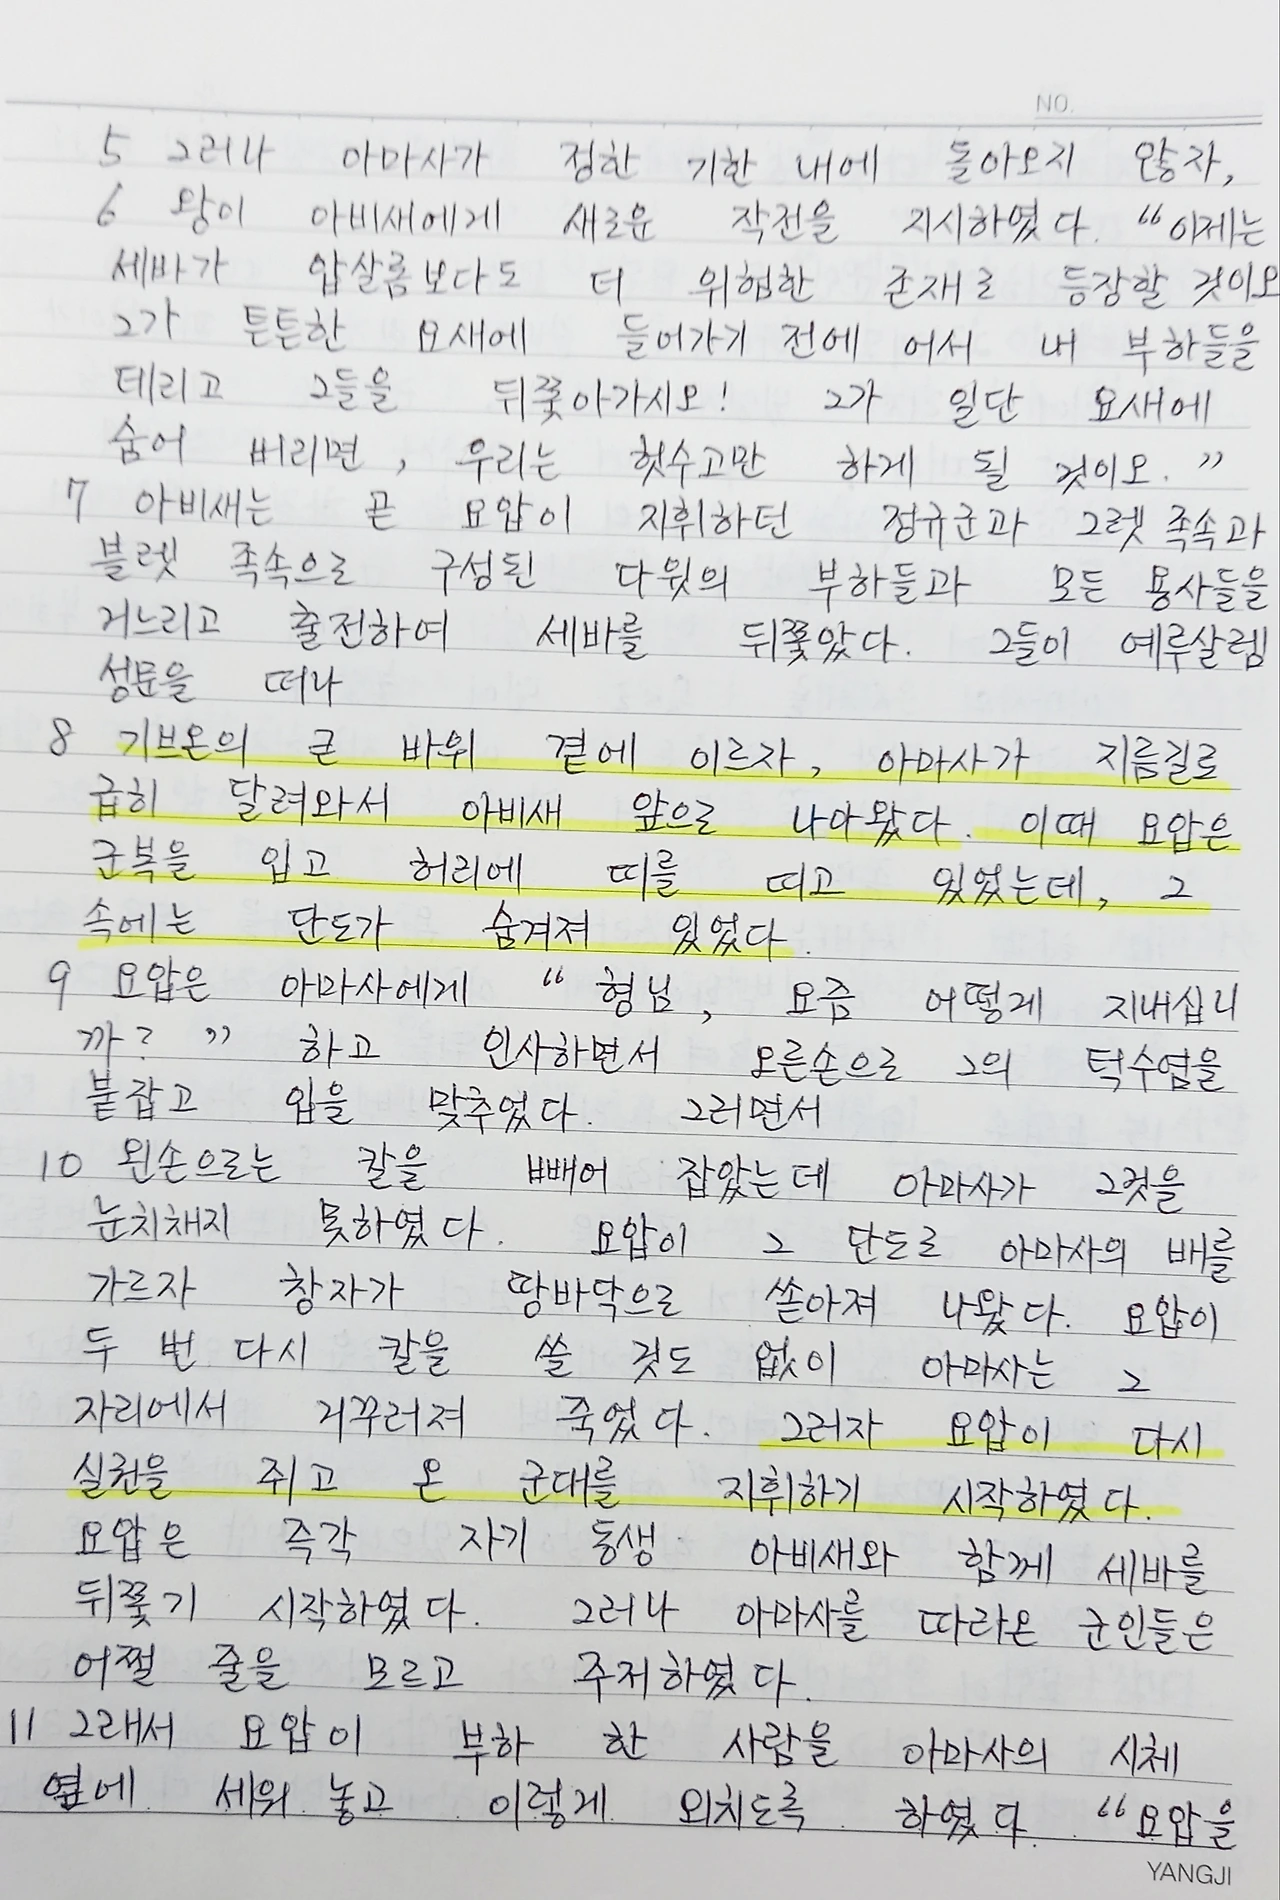 NO.
5 그러나 아마사가 정한 기한 내에 돌아오지 않자,
6 왕이 아비새에게 새로운 작전을 지시하였다. “이제는
세바가 압살롬보다도 더 위협한 존재로 등장할 것이오
그가 튼튼한 요새에 들어가기 전에 어서 내 부하들을
데리고 그들을 뒤쫓아가시오! 그가 일단 요새에
숨어 버리면, 우리는 헛수고만 하게 될 것이오.”
7 아비새는 곧 요압이 지휘하던 정규군과 그렛 족속과
블렛 족속으로 구성된 다윗의 부하들과 모든 용사들을
거느리고 출전하여 세바를 뒤쫓았다. 그들이 예루살렘
성문을 떠나
8 기브온의 큰 바위 곁에 이르자, 아마사가 지름길로
급히 달려와서 아비새 앞으로 나아왔다. 이때 요압은
군복을 입고 허리에 띠를 띠고 있었는데, 그
속에는 단도가 숨겨져 있었다.
9 요압은 아마사에게 “형님, 요즘 어떻게 지내십니
까?” 하고 인사하면서 오른손으로 그의 턱수염을
붙잡고 입을 맞추었다. 그러면서
10 왼손으로는 칼을 빼어 잡았는데 아마사가 그것을
눈치채지 못하였다. 요압이 그 단도로 아마사의 배를
가르자 창자가 땅바닥으로 쏟아져 나왔다. 요압이
두 번 다시 칼을 쓸 것도 없이 아마사는 그
자리에서 거꾸러져 죽었다. 그러자 요압이 다시
실권을 쥐고 온 군대를 지휘하기 시작하였다.
요압은 즉각 자기 동생 아비새와 함께 세바를
뒤쫓기 시작하였다. 그러나 아마사를 따라온 군인들은
어쩔 줄을 모르고 주저하였다.
11 그래서 요압이 부하 한 사람을 아마사의 시체
옆에 세워 놓고 이렇게 외치도록 하였다. “요압을
YANGJI